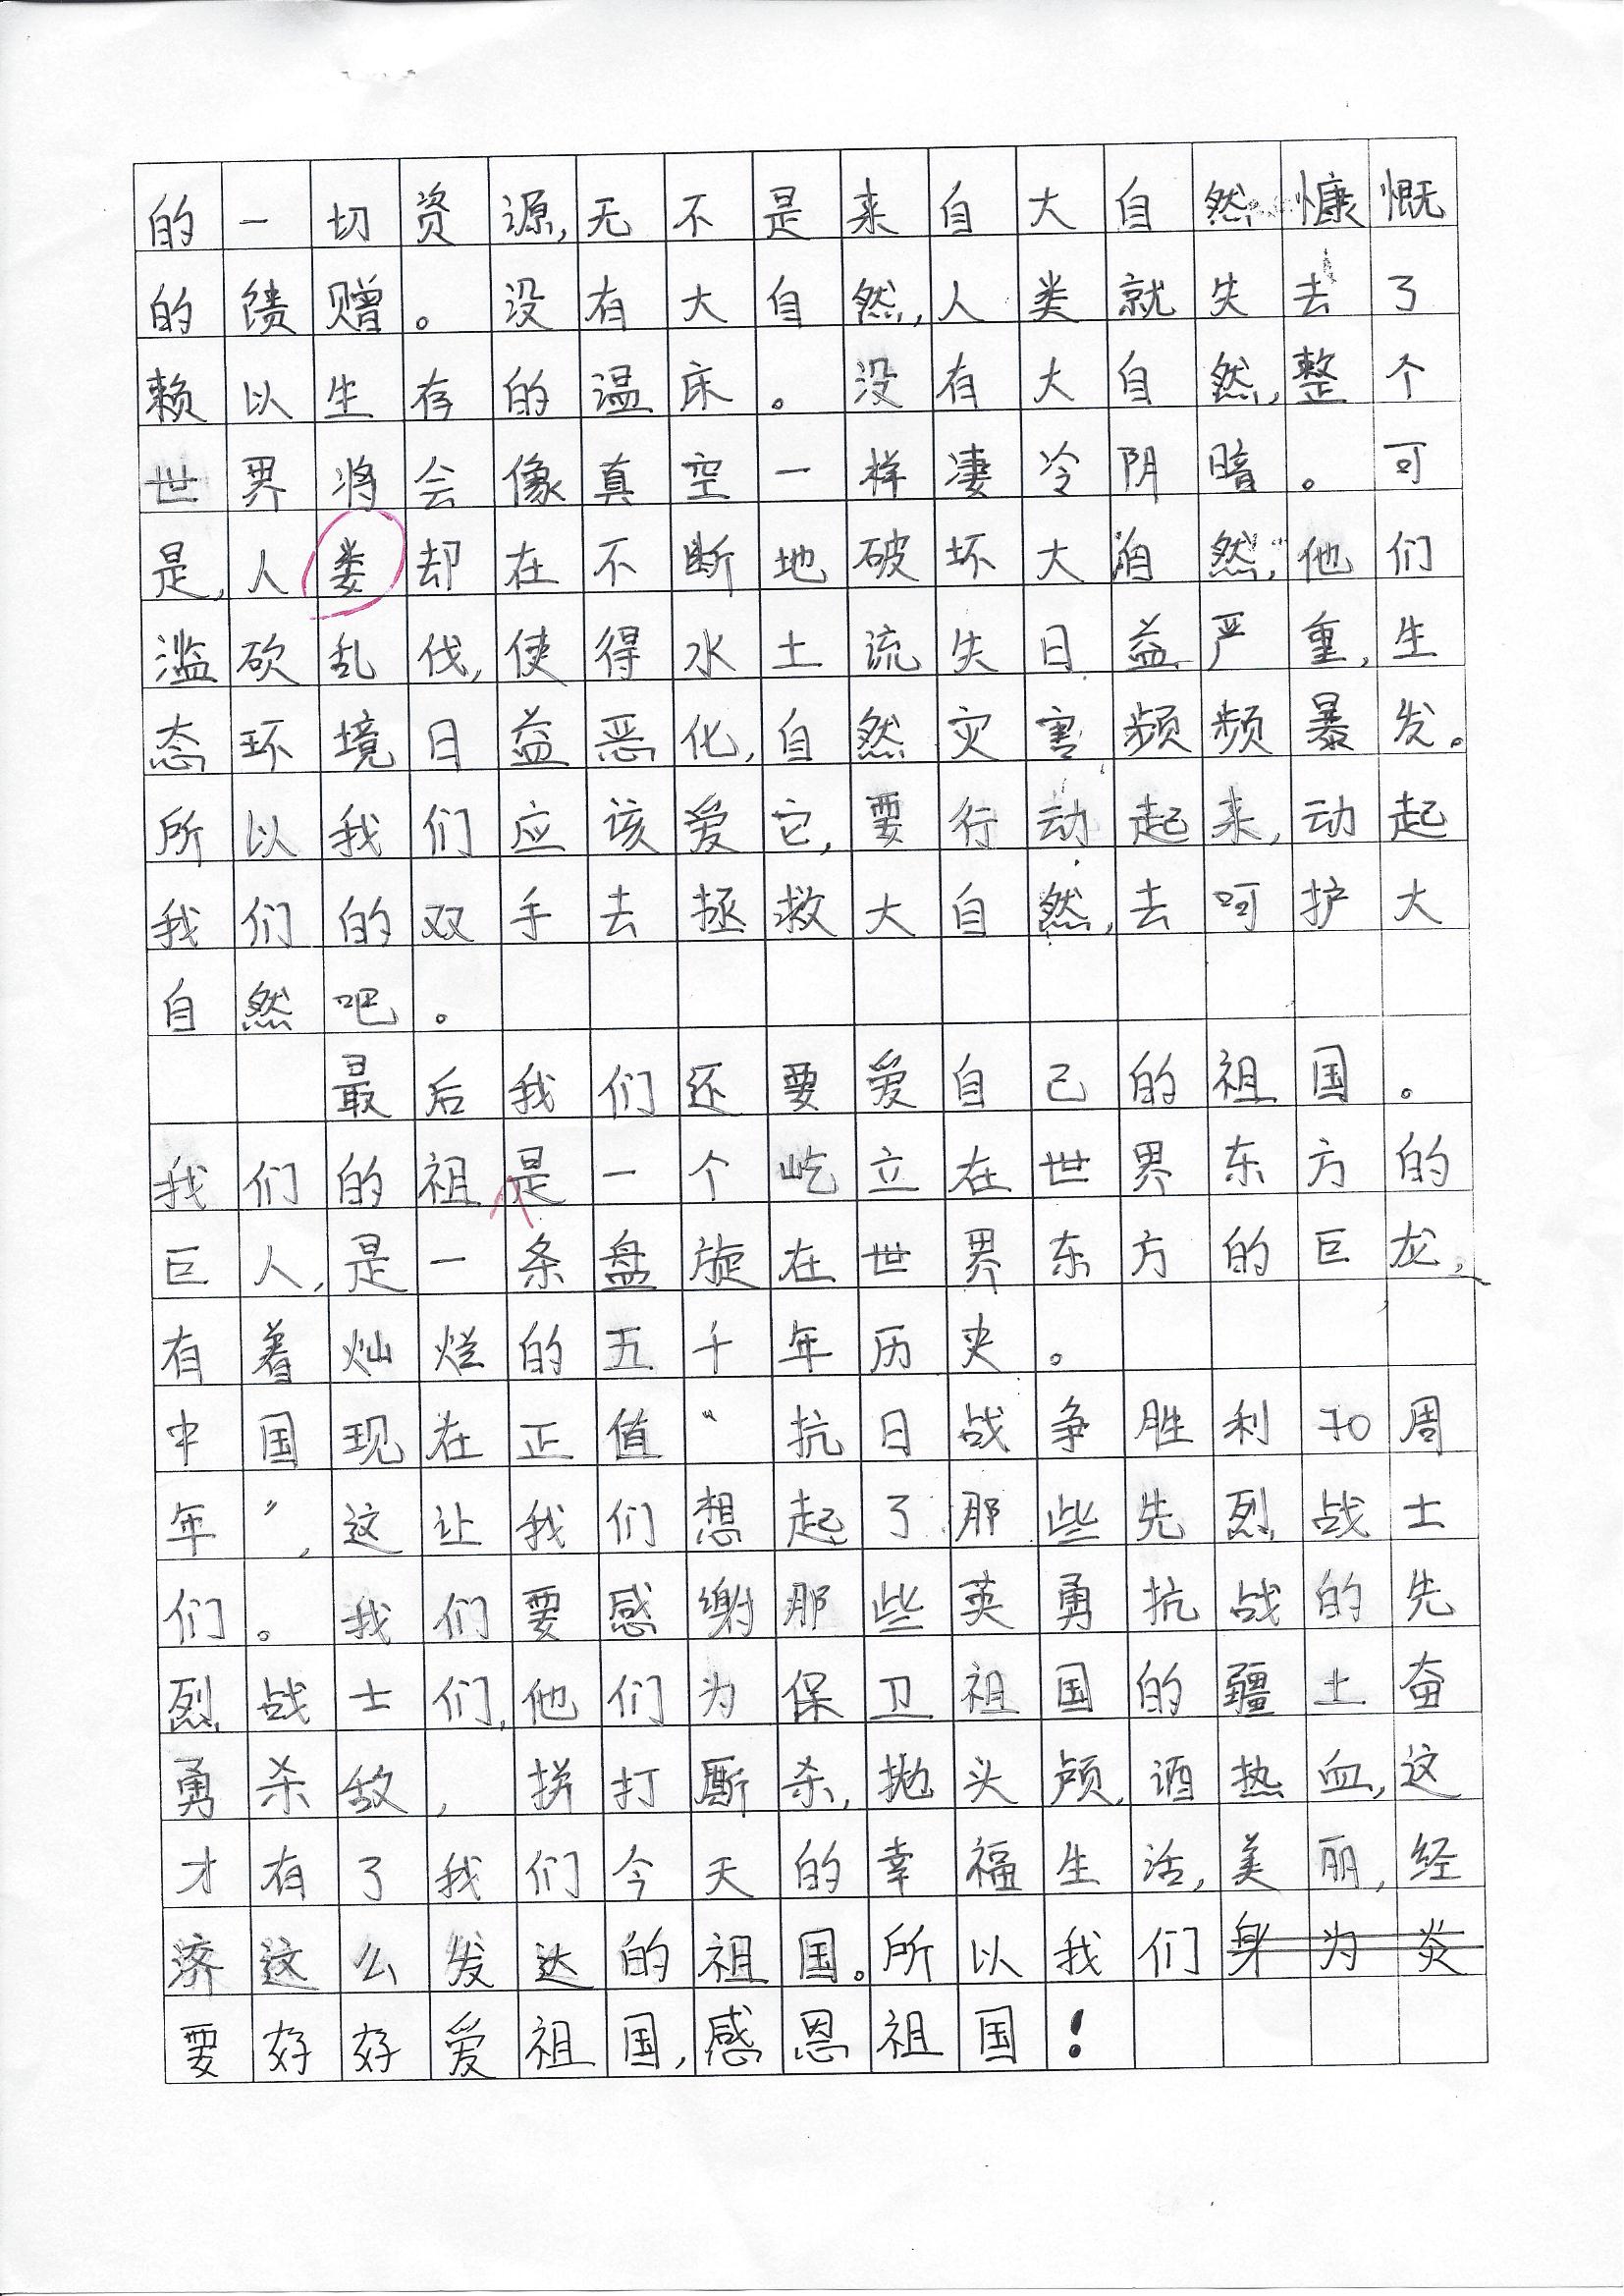 的一切资源,无不是来自大自然慷慨
的馈赠。没有大自然,人类就失去了
赖以生存的温床。没有大自然,整个
世界将会像真空一样凄冷阴暗。可
是,人娄却在不断地破坏大自然,他们
滥砍乱伐,使得水土流失日益严重,生
态环境日益恶化,自然灾害频频暴发。
所以我们应该爱它,要行动起来,动起
我们的双手去拯救大自然,去呵护大
自然吧。
最后我们还要爱自己的祖国。
我们的祖是一个屹立在世界东方的
巨人,是一条盘旋在世界东方的巨龙,
有着灿烂的五千年历史。
中国现在正值“抗日战争胜利70周
年”,这让我们想起了那些先烈战士
们。我们要感谢那些英勇抗战的先
烈战士们,他们为保卫祖国的疆土奋
勇杀敌,拼打厮杀,抛头颅,洒热血,这
才有了我们今天的幸福生活,美丽,经
济这么发达的祖国。所以我们身为炎
要好好爱祖国,感恩祖国!